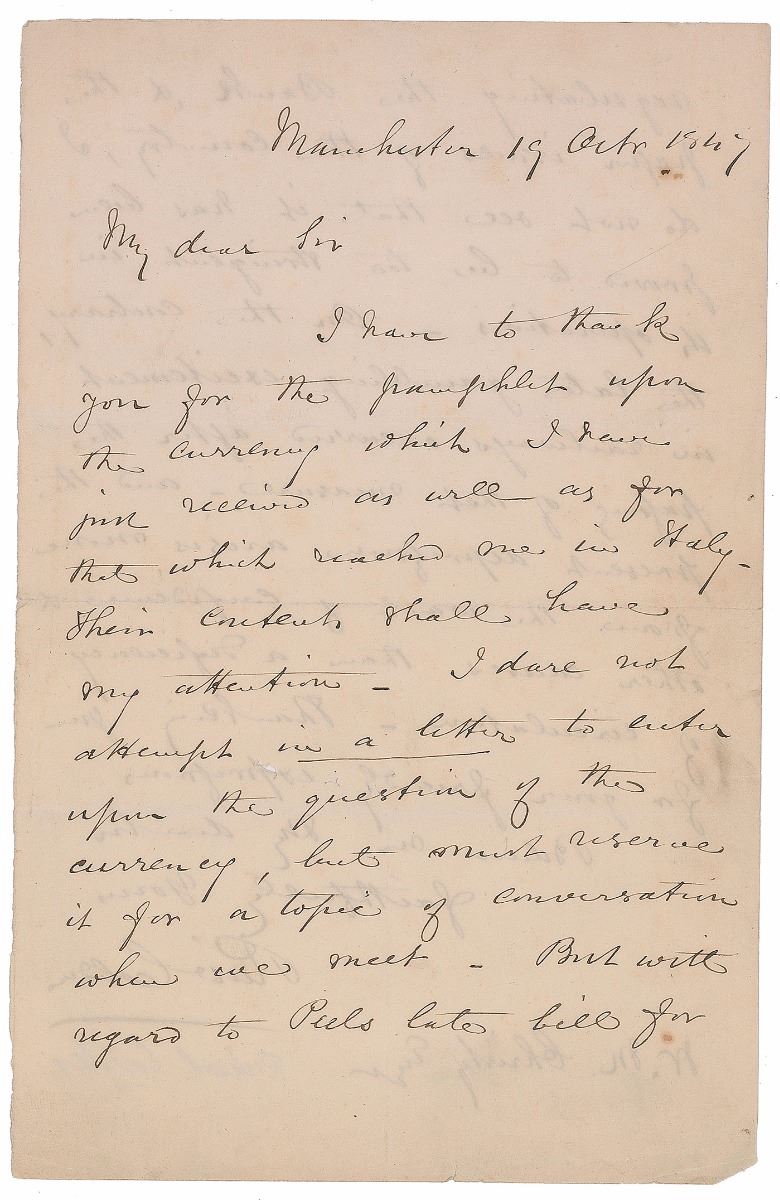 Manchester 19 Octr 1847
My dear Sir
I have to thank
you for the pamphlet upon
the currency which I have
just received as well as for
that which reached me in Italy -
Their contents shall have
my attention - I dare not
attempt in a letter to enter
upon the question of the
currency, but must reserve
it for a topic of conversation
when we meet - But with
regard to Peels late bill for